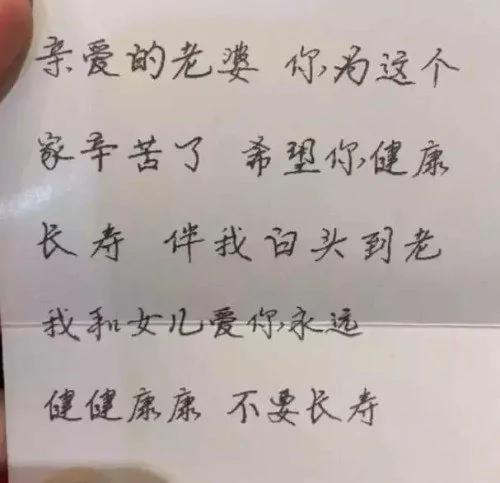 亲爱的老婆 你为这个
家辛苦了 希望你健康
长寿 伴我白头到老
我和女儿爱你永远
健健康康 不要长寿